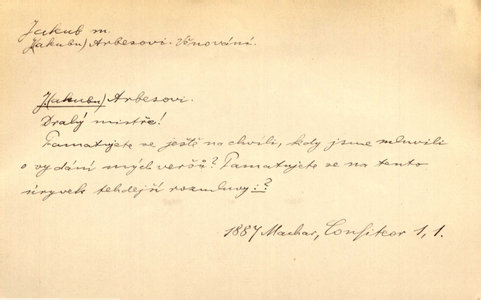 Jakub m.
J(akubu) Arbesovi. Věnování.
J(akubu) Arbesovi.
Drahý mistře!
Pamatujete se ještě na chvíli, kdy jsme mluvili
o vydání mých veršů? Pamatujete se na tento
úryvek tehdejší rozmluvy:?
1887 Machar, Confiteor 1, 1.